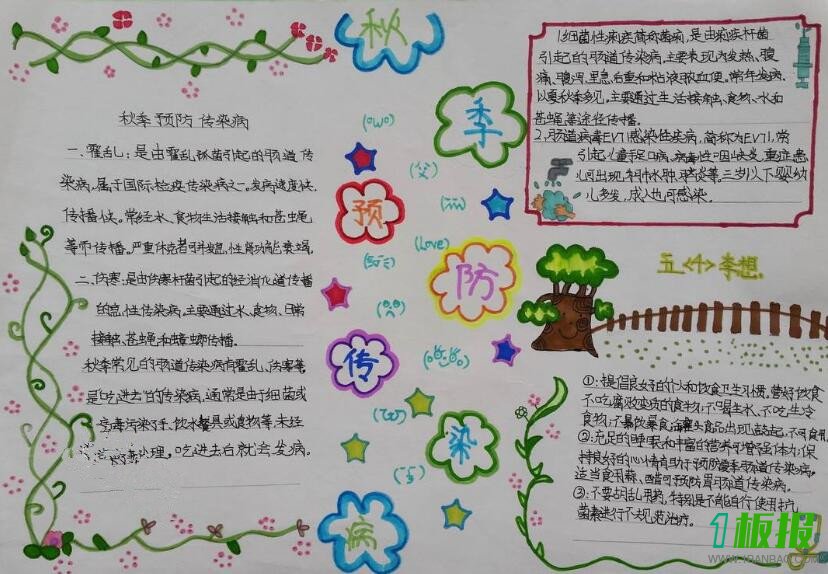 秋
季
预
防
传
染
病
秋季预防传染病
一、霍乱:是由霍乱弧菌引起的肠道传
染病,属于国际检疫传染病之一。发病速度快、
传播快。常经水、食物生活接触和苍蝇
等而传播。严重休克者可并发急性肾功能衰竭。
二、伤寒:是由伤寒杆菌引起的经消化道传播
的急性传染病,主要通过水、食物、日常
接触、苍蝇和蟑螂传播。
秋季常见的肠道传染病有霍乱、伤寒等
是"吃进去"的传染病,通常是由于细菌或
病毒污染了手、饮水、餐具或食物等,未经
处理。吃进去后就会发病。
(owo)
(父)
(Love)
1.细菌性痢疾简称菌痢,是由痢疾杆菌
引起的肠道传染病,主要表现为发热、腹
痛、腹泻、里急后重和粘液脓血便,常年发病,
以夏秋季多见,主要通过生活接触、食物、水和
苍蝇等途径传播。
2.肠道病毒EV71感染性疾病,简称为EV71,常
引起儿童手足口病、病毒性咽峡炎,重症患
儿可出现肺水肿、脑炎等。三岁以下婴幼
儿多发,成人也可感染。
五<4>李想
①:提倡良好的个人和饮食卫生习惯。管好饮食
不吃腐败变质的食物,不喝生水、不吃生冷
食物,不暴饮暴食
②:充足的睡眠和丰富的营养可增强体力;保
持良好的心情有助于预防秋季肠道传染病。
适当食用蒜、醋可预防胃肠道传染病。
③:不要胡乱用药,特别是不能自行使用抗
菌素进行不规范治疗。
1板报
WWW.1BANBAO.COM